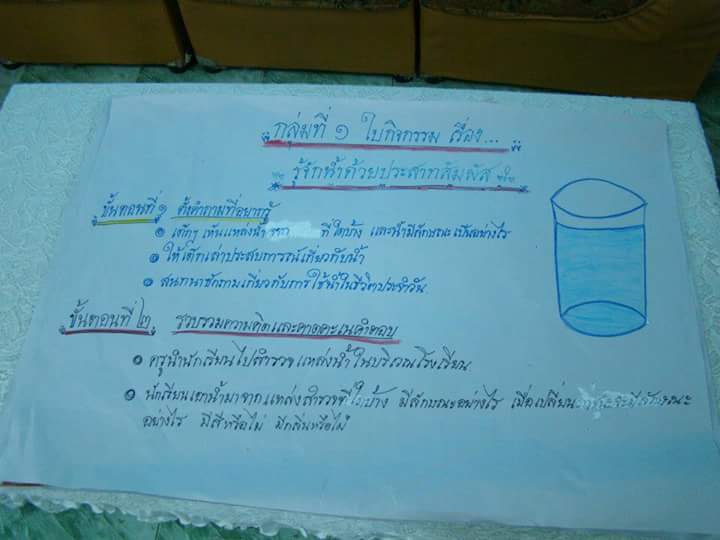 กลุ่มที่ ๑ ใบกิจกรรม เรื่อง...
รู้จักน้ำด้วยประสาทสัมผัส
ขั้นตอนที่ ๑ ตั้งคำถามที่อยากรู้
เด็กๆ เห็นแหล่งน้ำ ที่ใดบ้าง และน้ำมีลักษณะเป็นอย่างไร
ให้เด็กเล่าประสบการณ์เกี่ยวกับน้ำ
สนทนาซักถามเกี่ยวกับการใช้น้ำในชีวิตประจำวัน
ขั้นตอนที่ ๒ รวบรวมความคิดและคาดคะเนคำตอบ
ครูนำนักเรียนไปสำรวจแหล่งน้ำในบริเวณโรงเรียน
นักเรียนเอาน้ำมาจากแหล่งสำรวจที่ใดบ้าง มีลักษณะอย่างไร เมื่อเปลี่ยน จะมีลักษณะ
อย่างไร มีสีหรือไม่ มีกลิ่นหรือไม่